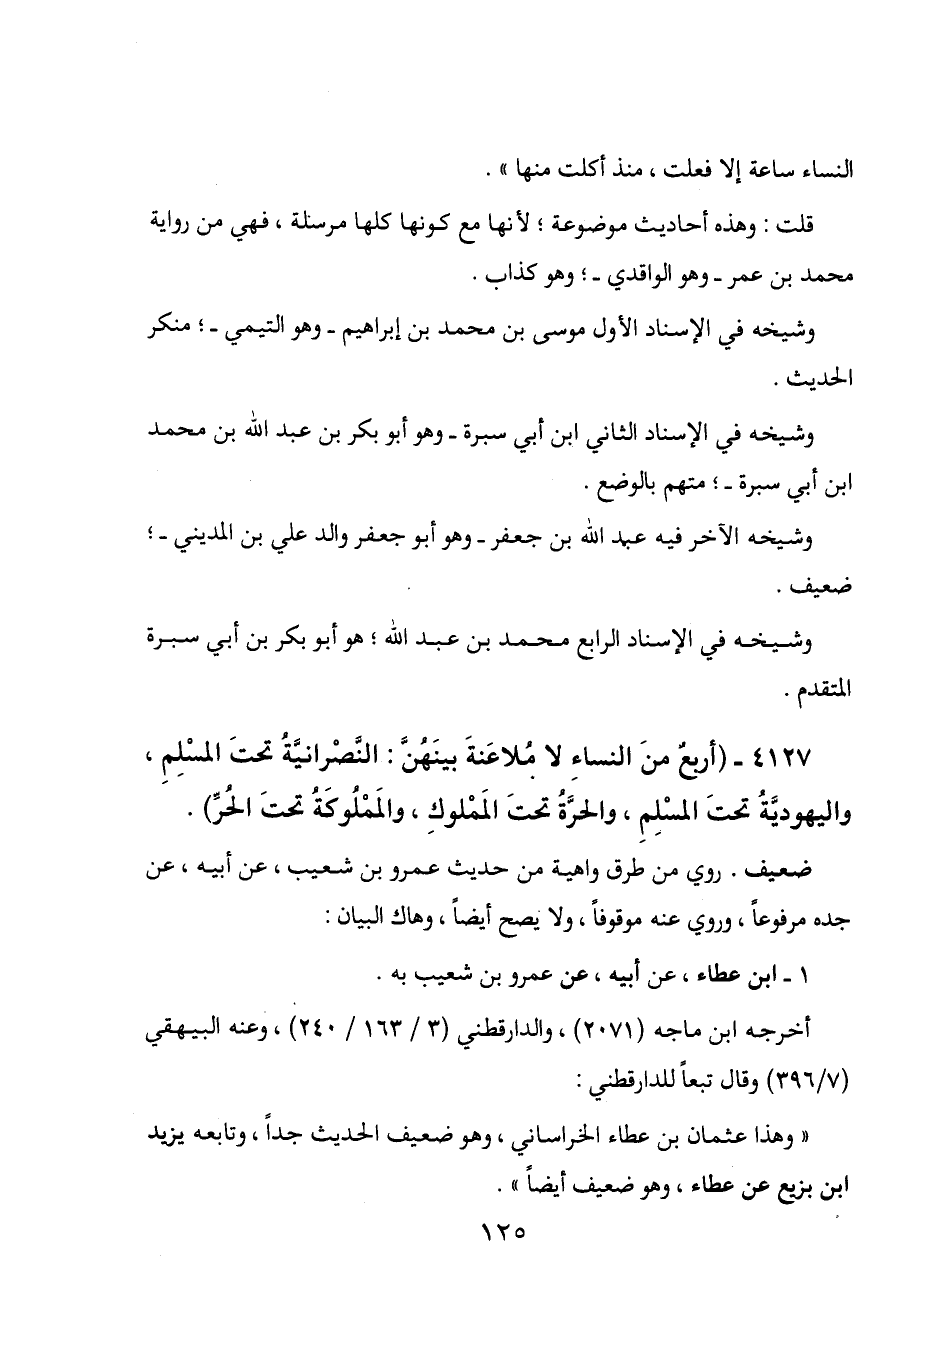 النساء ساعة إلا فعلت ، منذ أكلت منها » .
قلت : وهذه أحاديث موضوعة ؛ لأنها مع كونها كلها مرسلة ، فهي من رواية
محمد بن عمر ـ وهو الواقدي ـ ؛ وهو كذاب .
وشيخه في الإسناد الأول موسى بن محمد بن إبراهيم ـ وهو التيمي ـ ؛ منكر
الحديث .
وشيخه في الإسناد الثاني ابن أبي سبرة ـ وهو أبو بكر بن عبد الله بن محمد
ابن أبي سبرة ـ ؛ متهم بالوضع .
وشيخه الآخر فيه عبد الله بن جعفر ـ وهو أبو جعفر والد علي بن المديني ـ ؛
ضعيف .
وشيخه في الإسناد الرابع محمد بن عبد الله ؛ هو أبو بكر بن أبي سبرة
المتقدم .
٤١٢٧ ـ (أربعٌ منَ النساءِ لا مُلاعَنةَ بينَهُنَّ : النَّصْرانيَّةُ تحتَ المسْلِمِ ،
واليهوديَّةُ تحتَ المسْلِمِ ، والحرَّةُ تحتَ المَمْلوكِ ، والمَمْلُوكَةُ تحتَ الحُرِّ) .
ضعيف . روي من طرق واهية من حديث عمرو بن شعيب ، عن أبيه ، عن
جده مرفوعاً ، وروي عنه موقوفاً ، ولا يصح أيضاً ، وهاك البيان :
١ ـ ابن عطاء ، عن أبيه ، عن عمرو بن شعيب به .
أخرجه ابن ماجه (٢٠٧١) ، والدارقطني (٣ / ١٦٣ / ٢٤٠) ، وعنه البيهقي
(٣٩٦/٧) وقال تبعاً للدارقطني :
« وهذا عثمان بن عطاء الخراساني ، وهو ضعيف الحديث جداً ، وتابعه يزيد
ابن بزيع عن عطاء ، وهو ضعيف أيضاً » .
١٢٥